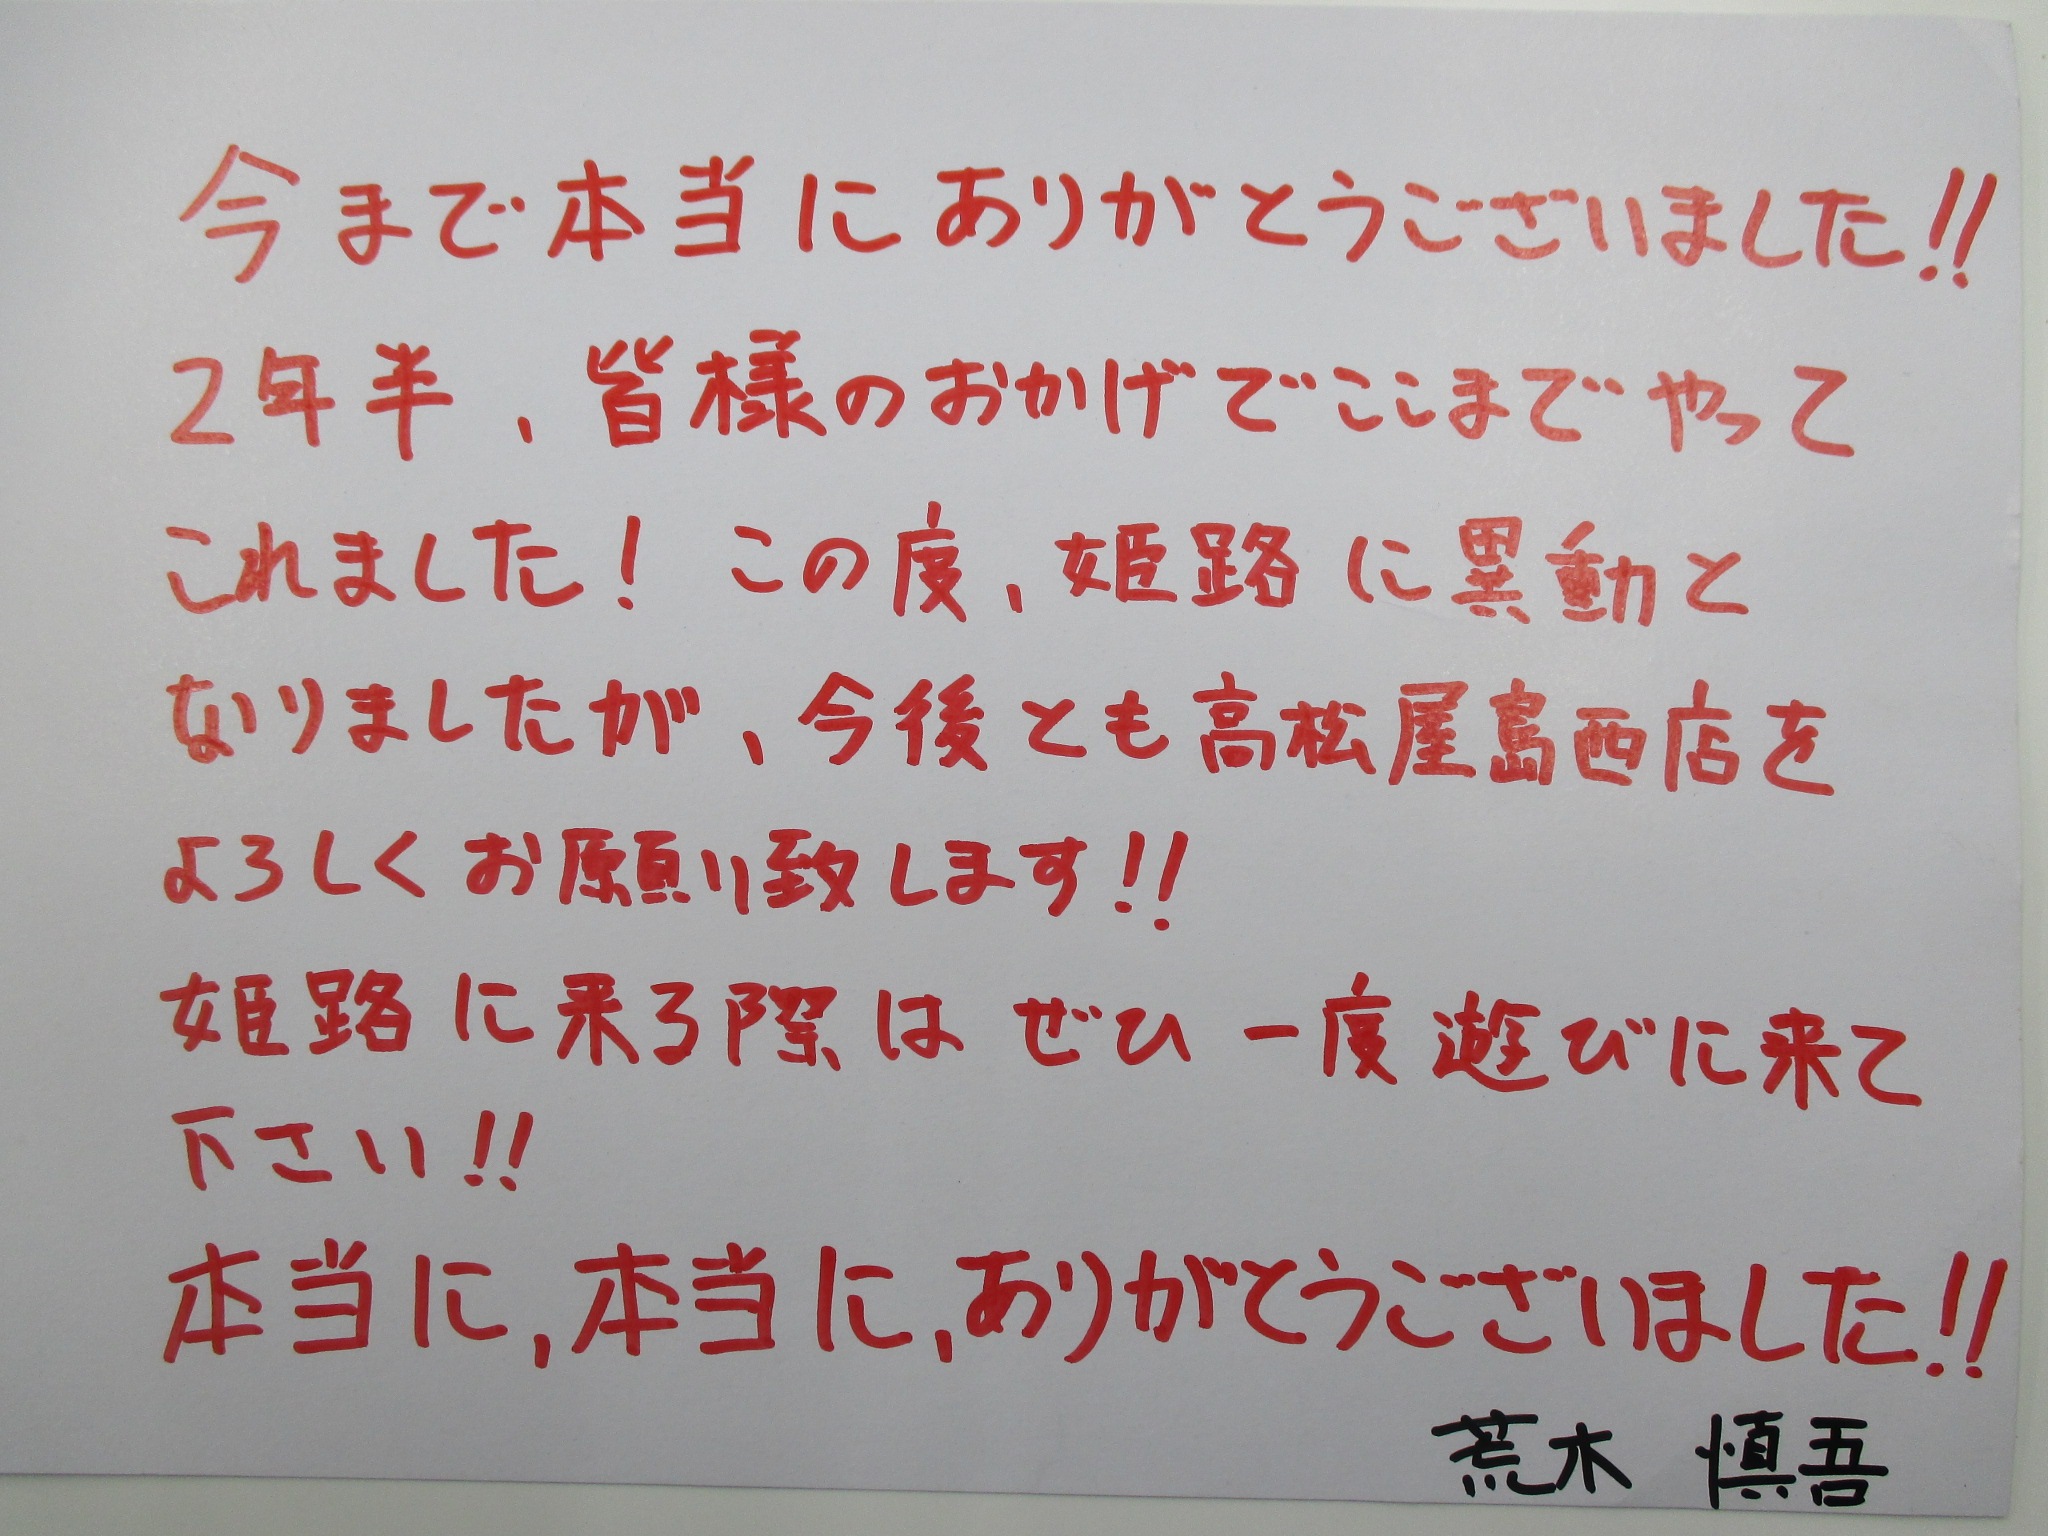 今まで本当にありがとうございました!!
2年半、皆様のおかげでここまでやって
これました! この度、姫路に異動と
なりましたが、今後とも高松屋島西店を
よろしくお願い致します!!
姫路に来る際は ぜひ 一度遊びに来て
下さい!!
本当に、本当に、ありがとうございました!!
荒木 慎吾